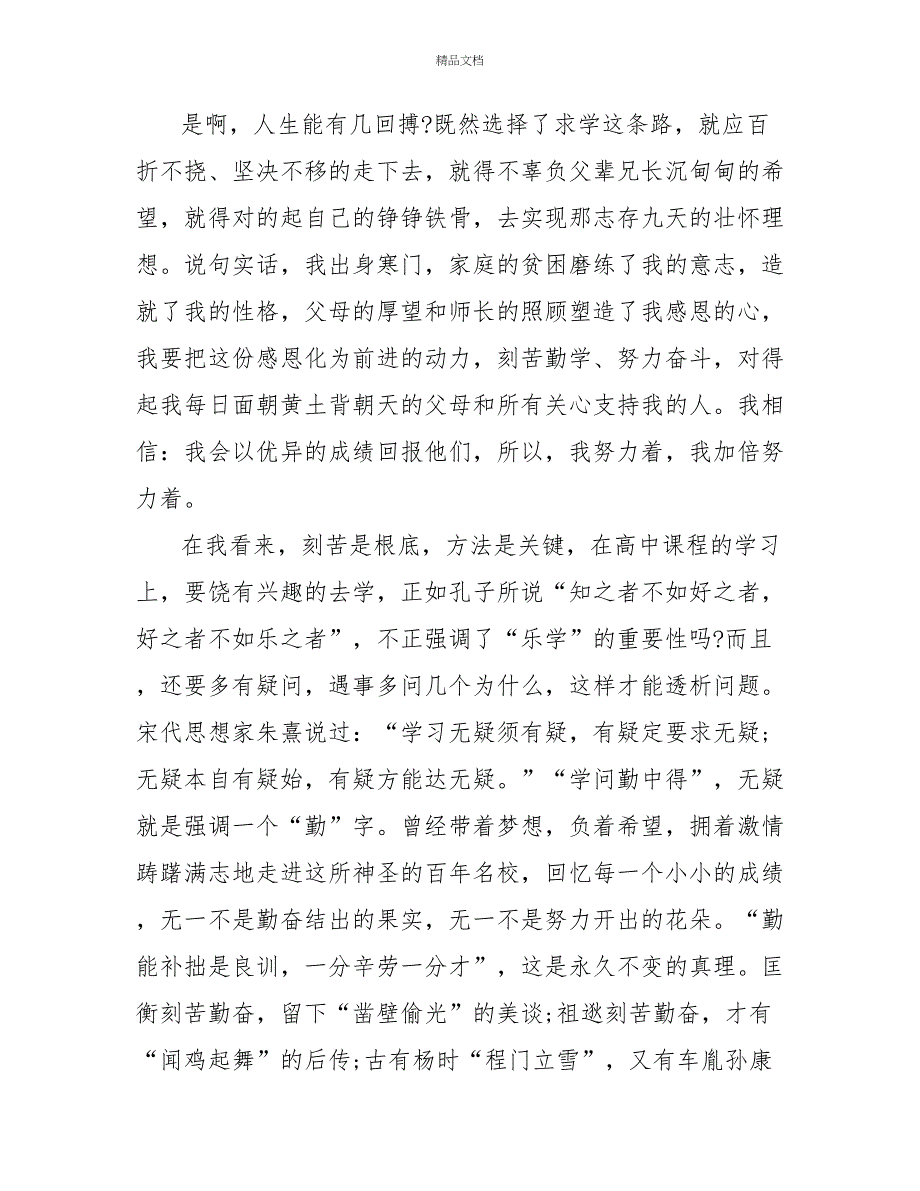 精品文档
是啊，人生能有几回搏?既然选择了求学这条路，就应百
折不挠、坚决不移的走下去，就得不辜负父辈兄长沉甸甸的希
望，就得对的起自己的铮铮铁骨，去实现那志存九天的壮怀理
想。说句实话，我出身寒门，家庭的贫困磨练了我的意志，造
就了我的性格，父母的厚望和师长的照顾塑造了我感恩的心，
我要把这份感恩化为前进的动力，刻苦勤学、努力奋斗，对得
起我每日面朝黄土背朝天的父母和所有关心支持我的人。我相
信：我会以优异的成绩回报他们，所以，我努力着，我加倍努
力着。
在我看来，刻苦是根底，方法是关键，在高中课程的学习
上，要饶有兴趣的去学，正如孔子所说“知之者不如好之者，
好之者不如乐之者”，不正强调了“乐学”的重要性吗?而且
，还要多有疑问，遇事多问几个为什么，这样才能透析问题。
宋代思想家朱熹说过：“学习无疑须有疑，有疑定要求无疑;
无疑本自有疑始，有疑方能达无疑。”“学问勤中得”，无疑
就是强调一个“勤”字。曾经带着梦想，负着希望，拥着激情
踌躇满志地走进这所神圣的百年名校，回忆每一个小小的成绩
，无一不是勤奋结出的果实，无一不是努力开出的花朵。“勤
能补拙是良训，一分辛劳一分才”，这是永久不变的真理。匡
衡刻苦勤奋，留下“凿壁偷光”的美谈;祖逖刻苦勤奋，才有
“闻鸡起舞”的后传;古有杨时“程门立雪”，又有车胤孙康